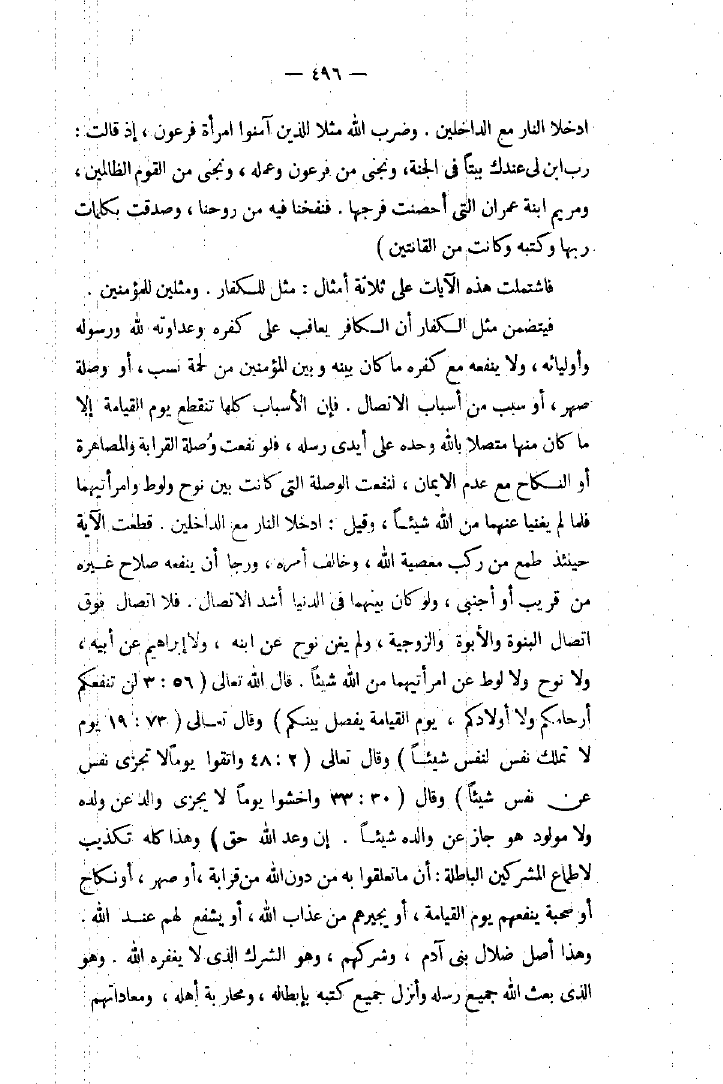 — ٤٩٦ —
ادخلا النار مع الداخلين . وضرب الله مثلا للذين آمنوا امرأة فرعون ، إذ قالت :
رب ابن لى عندك بيتاً فى الجنة، ونجنى من فرعون وعمله ، ونجنى من القوم الظالمين ،
ومريم ابنة عمران التى أحصنت فرجها . فنفخنا فيه من روحنا ، وصدقت بكلمات
ربها وكتبه وكانت من القانتين )
فاشتملت هذه الآيات على ثلاثة أمثال : مثل للكفار . ومثلين للمؤمنين .
فيتضمن مثل الكفار أن الكافر يعاقب على كفره وعداوته لله ورسوله
وأوليائه ، ولا ينفعه مع كفره ما كان بينه وبين المؤمنين من لحمة نسب ، أو وصلة
صهر ، أو سبب من أسباب الاتصال . فإن الأسباب كلها تنقطع يوم القيامة إلا
ما كان منها متصلا بالله وحده على أيدى رسله ، فلو نفعت وُصلة القرابة والمصاهرة
أو النكاح مع عدم الايمان ، لنفعت الوصلة التى كانت بين نوح ولوط وامرأتيهما
فلما لم يغنيا عنهما من الله شيئاً ، وقيل : ادخلا النار مع الداخلين . قطعت الآية
حينئذ طمع من ركب معصية الله ، وخالف أمره ، ورجا أن ينفعه صلاح غيره
من قريب أو أجنبى ، ولو كان بينهما فى الدنيا أشد الاتصال . فلا اتصال فوق
اتصال البنوة والأبوة والزوجية ، ولم يغن نوح عن ابنه ، ولا إبراهيم عن أبيه ،
ولا نوح ولا لوط عن امرأتيهما من الله شيئاً . قال الله تعالى ( ٥٦ : ٣ لن تنفعكم
أرحامكم ولا أولادكم ، يوم القيامة يفصل بينكم ) وقال تعالى ( ٧٣ : ١٩ يوم
لا تملك نفس لنفس شيئاً ) وقال تعالى ( ٢ : ٤٨ واتقوا يوماً لا تجزى نفس
عن نفس شيئاً ) وقال ( ٣٠ : ٣٣ واخشوا يوماً لا يجزى والد عن ولده
ولا مولود هو جاز عن والده شيئاً . إن وعد الله حق ) وهذا كله تكذيب
لاطماع المشركين الباطلة : أن ما تعلقوا به من دون الله من قرابة ، أو صهر ، أو نكاح
أو صحبة ينفعهم يوم القيامة ، أو يجيرهم من عذاب الله ، أو يشفع لهم عند الله .
وهذا أصل ضلال بنى آدم ، وشركهم ، وهو الشرك الذى لا يغفره الله . وهو
الذى بعث الله جميع رسله وأنزل جميع كتبه بإبطاله ، ومحاربة أهله ، ومعاداتهم